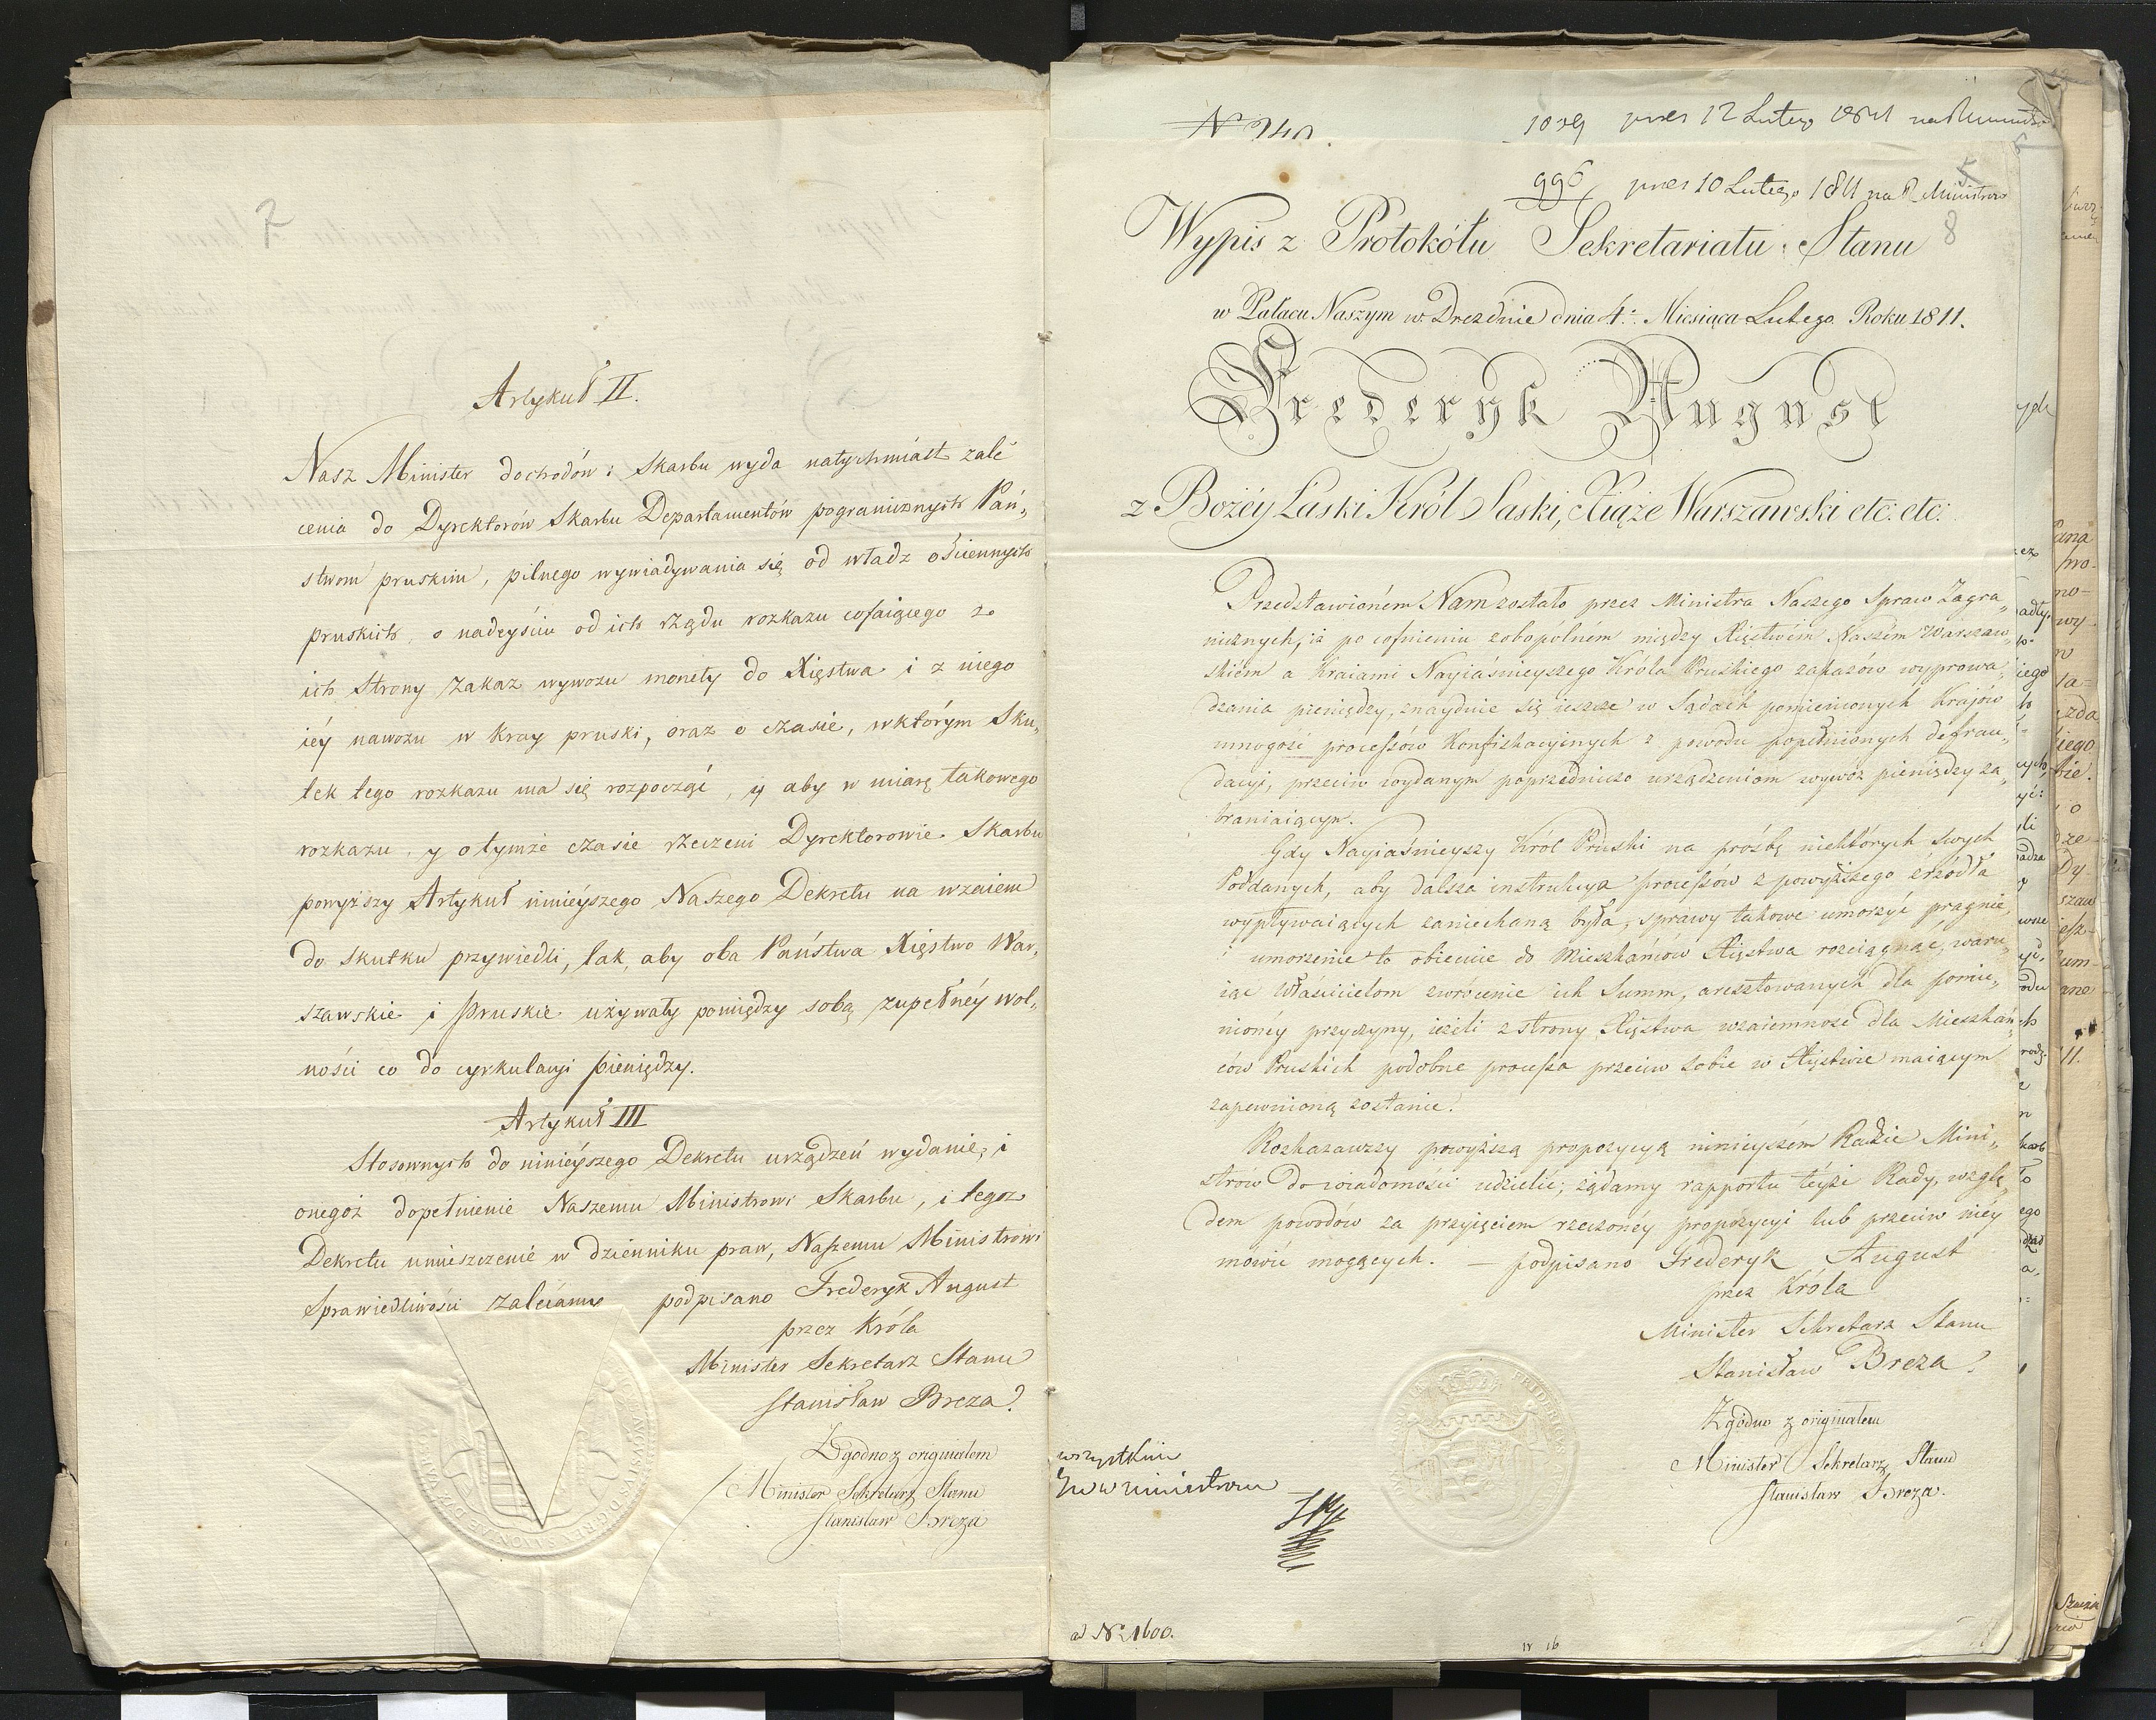 7
Artykuł II.
Nasz Minister dochodów i Skarbu wyda natychmiast zale
cenia do Dyrektorów Skarbu Departamentów pogranicznych Pań„
stwom pruskim, pilnego wywiadywania się od władz ościennych
pruskich, o nadeyściu od ich rządu rozkazu cofaiącego ze
ich strony zakaz wywozu monety do Xięstwa i z niego
iéy nawozu w kray pruski, oraz o czasie, w którym Sku„
tek tego rozkazu ma się rozpocząć, y aby w miarę takowego
rozkazu, y o tymże czasie rzeczeni Dyrektorowie Skarbu
powyższy Artykuł ninieyszego Naszego Dekretu na wzaiem
do skutku przywiedli, tak, aby oba Państwa Xięstwo War„
szawskie i Pruskie używały pomiędzy sobą zupełnéy wol„
ności co do cyrkulacyi pieniędzy.
Artykuł III
Stosownych do ninieyszego Dekretu urządzeń wydanie, i
onegoż dopełnienie Naszemu Ministrowi Skarbu, i tegoz
Dekretu umieszczenie w dzienniku praw, Naszemu Ministrowi
Sprawiedliwości zalecamy podpisano Frederyk August
przez Króla
Minister Sekretarz Stanu
Stanisław Breza
Zgodno z originałem
Minister Sekretarz Stanu
Stanisław Breza
N 240.
1029 prses 12 Lutego 1811 na
996 prses 10 Lutego 1811 na R Ministrow
5
8
Wypis z Protokółu Sekretariatu Stanu
w Pałacu Naszym w Dreznie dnia 4. Miesiąca Lutego Roku 1811.
Frederyk August
z Bożéy Łaski Król Saski, Xiąże Warszawski etc: etc:
Przedstawioném Nam zostało przez Ministra Naszego Spraw Zagra„
nicznych, iż po cofnieniu zobopólném między Xięstwem Naszém Warszaw„
skiém a Kraiami Nayiaśnieyszego Króla Pruskiego zakazów wyprowa„
dzania pieniędzy, znayduie się ieszcze w Sądach pomienionych Krajów
mnogość processów Konfiskacyinych z powodu popełnionych defrau„
dacyi, przeciw wydanym poprzedniczo urządzeniom wywóz pieniędzy za„
braniaiącym.
Gdy Nayiaśnieyszy Król Pruski na prośbę niektórych swych
Poddanych, aby dalsza instrukcya processów z powyższego źrzódła
wypływaiących zaniechaną była, sprawy takowe umorzyć pragnie,
i umorzenie to obiecuie do Mieszkańców Xięstwa rozciągnąć, waru„
iąc Właścicielom zwrócenie ich Summ, aresztowanych dla pomie„
nionéy przyczyny, ieżeli z strony Xięstwa wzaiemność dla Mieszkań„
ców Pruskich podobne processa przeciw sobie w Xięstwie maiącym
zapewnioną zostanie.
Rozkazawszy powyższą propozycyą ninieyszém Radzie Mini„
strów do wiadomości udzielić, żądamy rapportu téyże Rady, wzglę„
dem powodów za przyięciem rzeczonéy propozycyi lub przeciw niéy
mówić mogących. — podpisano Frederyk August
przez Króla
Minister Sekretarz Stanu
Stanisław Breza
Zgodno z originałem
Minister Sekretarz Stanu
Stanisław Breza.
wszystkim
JW Ministrom
ad N. 1600.